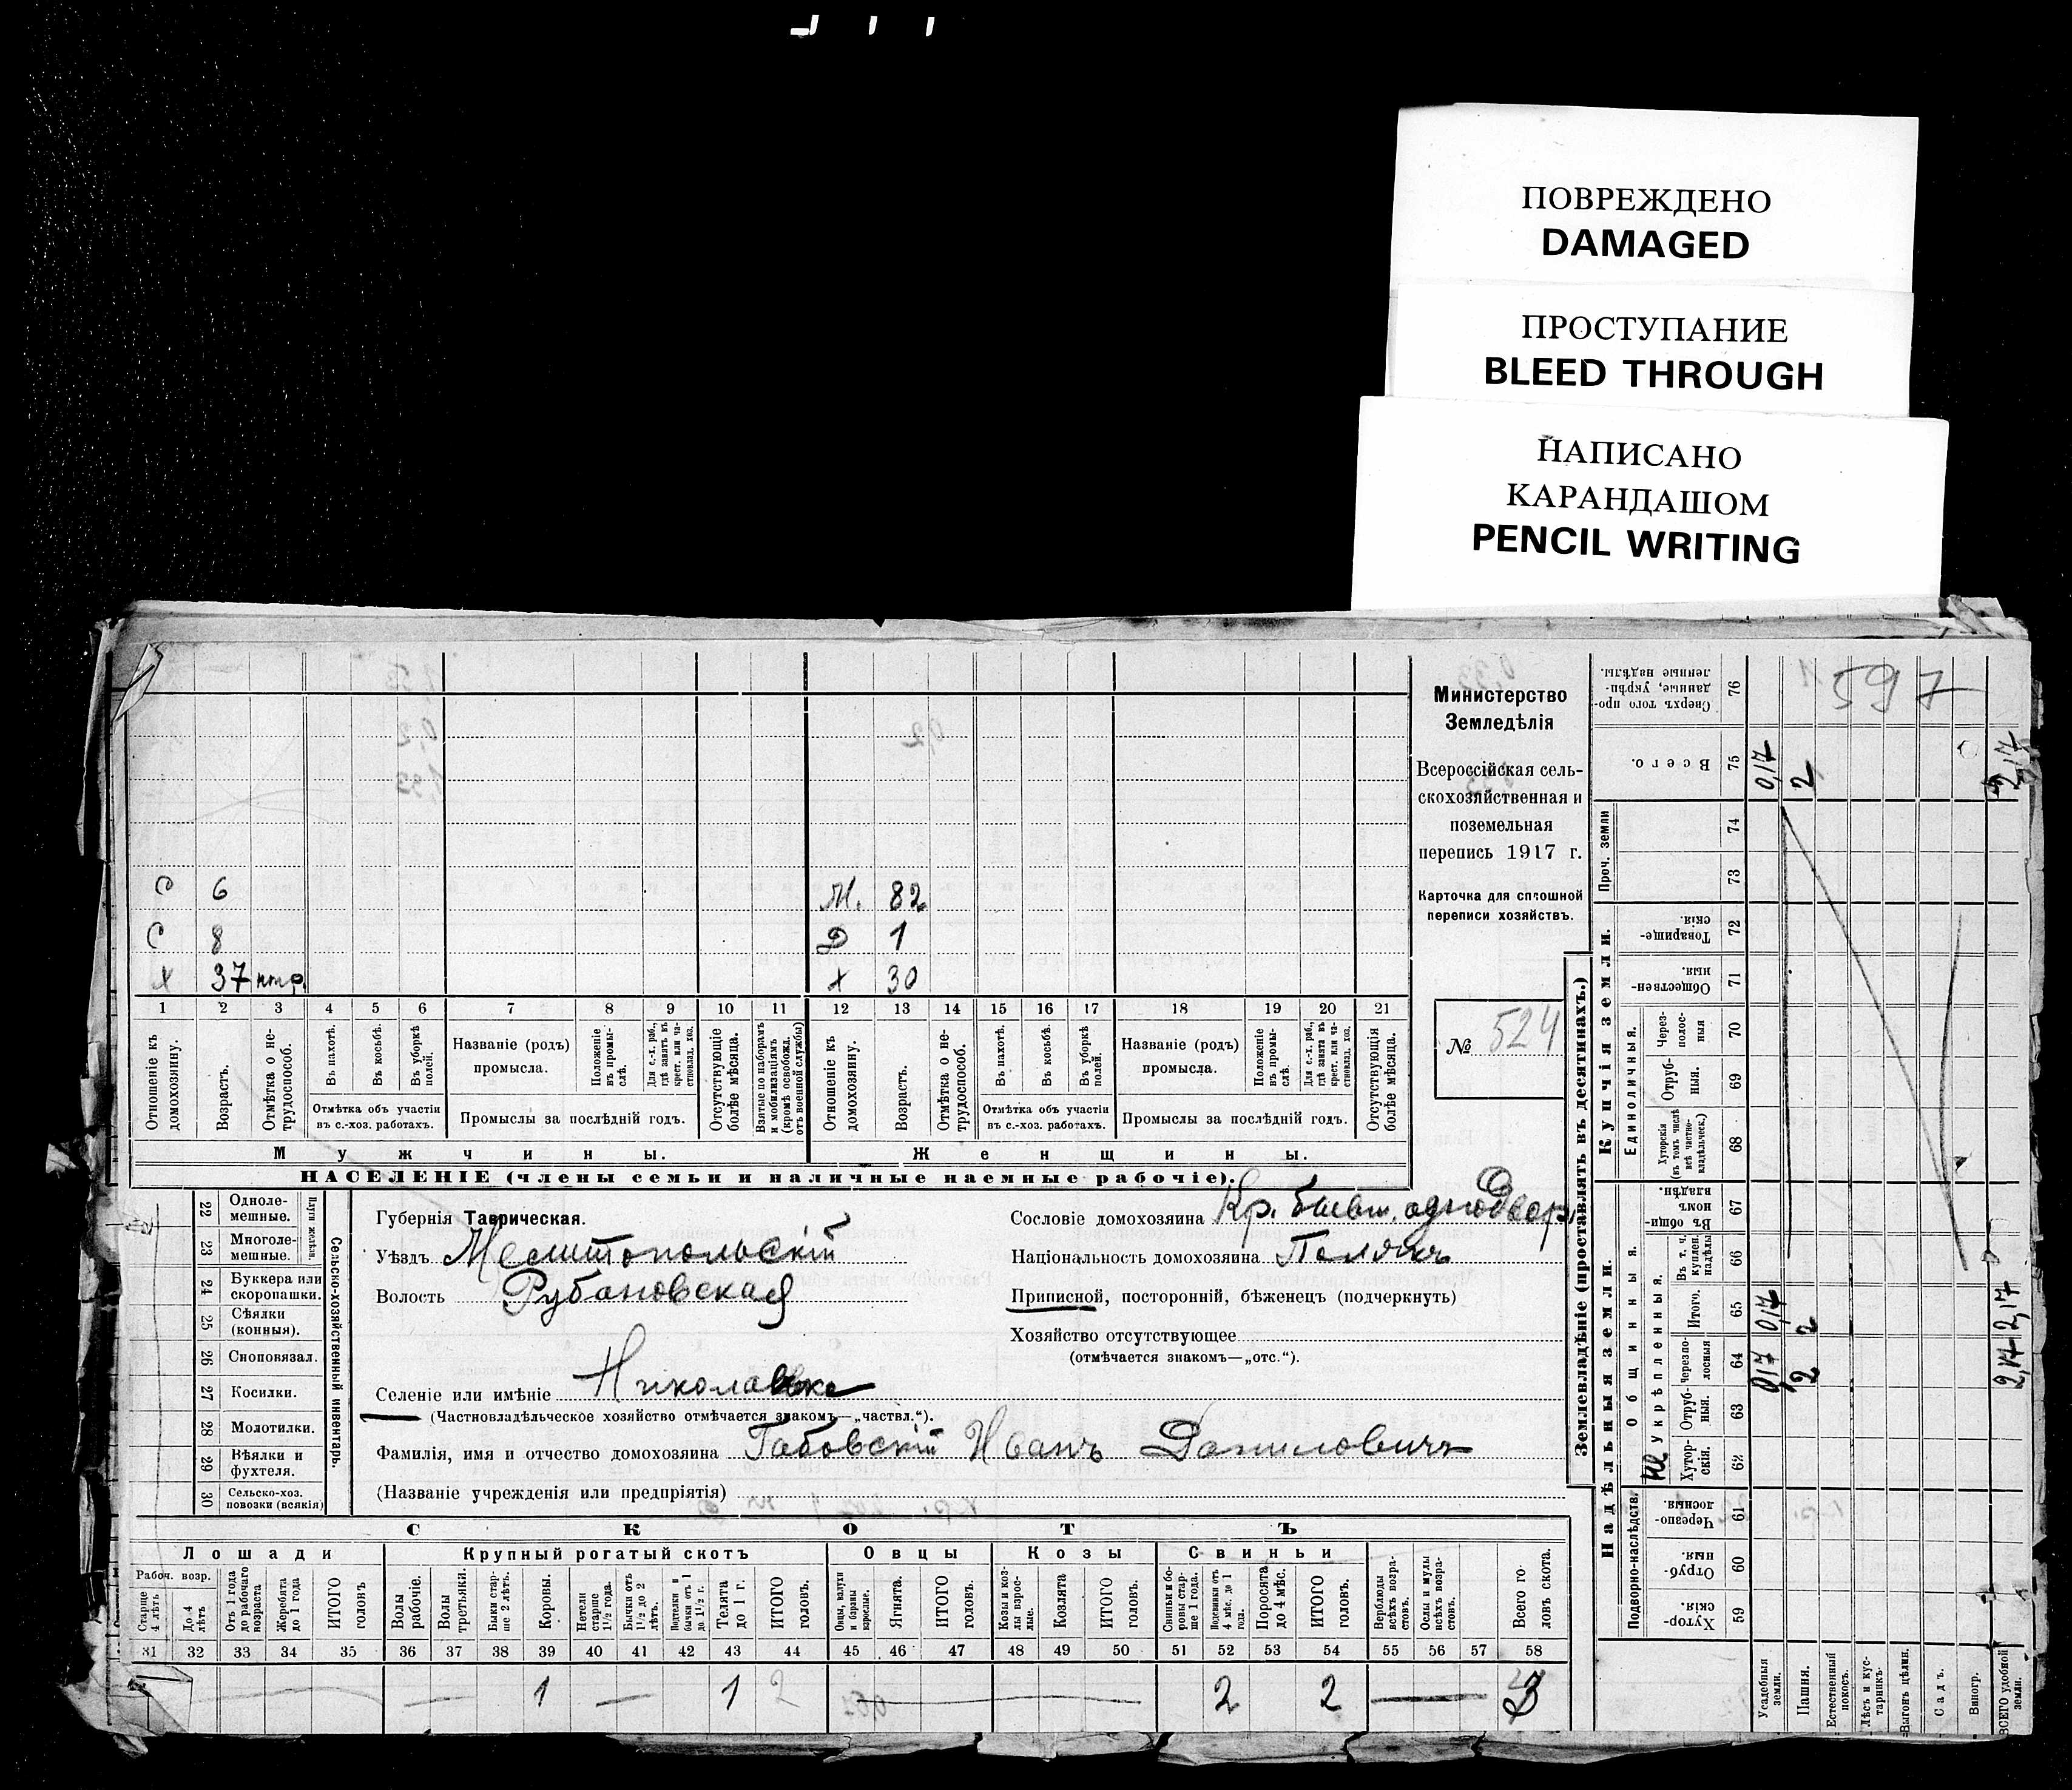 ПОВРЕЖДЕНО
DAMAGED
ПРОСТУПАНИЕ
BLEED THROUGH
НАПИСАНО
КАРАНДАШОМ
PENCIL WRITING
597
Министерство
Земледѣлія
Всероссійская сель-
скохозяйственная и
поземельная
перепись 1917 г.
Карточка для сплошной
переписи хозяйствъ.
№ 524
С 6
М. 82
С 8
Д 1
Х 37
Х 30
1 2 3 4 5 6 7 8 9 10 11 12 13 14 15 16 17 18 19 20 21
Отношеніе къ домохозяину.
Возрастъ.
Отмѣтка о не-трудоспособ.
Въ пахотѣ.
Въ косьбѣ.
Въ уборкѣ полей.
Отмѣтка объ участіи
въ с.-хоз. работахъ.
Названіе (родъ)
промысла.
Положеніе въ промы-слѣ.
Для с.-х. раб., гдѣ занятъ въ крест. или ча-стновлад. хоз.
Промыслы за послѣдній годъ.
Отсутствующіе болѣе мѣсяца.
Взятые по наборамъ и мобилизаціямъ (кромѣ освобожд. отъ военной службы)
Отношеніе къ домохозяину.
Возрастъ.
Отмѣтка о не-трудоспособ.
Въ пахотѣ.
Въ косьбѣ.
Въ уборкѣ полей.
Отмѣтка объ участіи
въ с.-хоз. работахъ.
Названіе (родъ)
промысла.
Положеніе въ промы-слѣ.
Для с.-х. раб., гдѣ занята въ крест. или ча-стновлад. хоз.
Промыслы за послѣдній годъ.
Отсутствующія болѣе мѣсяца.
Мужчины.
Женщины.
НАСЕЛЕНІЕ (члены семьи и наличные наемные рабочіе).
22 Одноле-мешные.
23 Многоле-мешные.
Плуги желѣзн.
24 Буккера или скоропашки.
25 Сѣялки (конныя).
26 Сноповязал.
27 Косилки.
28 Молотилки.
29 Вѣялки и фухтеля.
30 Сельско-хоз. повозки (всякія)
Сельско-хозяйственный инвентарь.
Губернія Таврическая.
Уѣздъ Мелитопольскій
Волость Рубановская
Селеніе или имѣніе Николаевка
(Частновладѣльческое хозяйство отмѣчается знакомъ—„частвл.“).
Фамилія, имя и отчество домохозяина Габовскій Иванъ Даниловичъ
(Названіе учрежденія или предпріятія)
Сословіе домохозяина Кр. бывш. однодвор.
Національность домохозяина Полякъ
Приписной, посторонній, бѣженецъ (подчеркнуть)
Хозяйство отсутствующее
(отмѣчается знакомъ—„отс.“).
СКОТЪ
Лошади
Крупный рогатый скотъ
Овцы
Козы
Свиньи
Рабоч. возр.
Старше 4 лѣтъ
До 4 лѣтъ
Отъ 1 года до рабочаго возраста
Жеребята до 1 года
ИТОГО головъ
Волы рабочіе.
Волы третьяки.
Быки стар-ше 2 лѣтъ.
Коровы.
Нетели старше 1½ года.
Бычки отъ 1½ до 2 лѣтъ.
Подтелки и бычки отъ 1 до 1½ г.
Телята до 1 г.
ИТОГО головъ.
Овцы, валухи и бараны взрослые.
Ягнята.
ИТОГО головъ.
Козы и коз-лы взрос-лые.
Козлята
ИТОГО головъ.
Свиньи и бо-ровы стар-ше 1 года.
Подсвинки отъ 4 мѣс. до 1 года.
Поросята до 4 мѣс.
ИТОГО головъ.
Верблюды всѣхъ возра-стовъ.
Ослы и мулы всѣхъ возра-стовъ.
Всего го-ловъ скота.
31 32 33 34 35 36 37 38 39 40 41 42 43 44 45 46 47 48 49 50 51 52 53 54 55 56 57 58
1 1 2 2 2
Землевладѣніе (проставлять въ десятинахъ.)
Купчія земли.
Надѣльныя земли.
76 Сверхъ того про-данные, укрѣп-ленные надѣлы.
75 Всего. 0,17 2 2,17
Проч. земли
74
73
72 Товарище-скія.
71 Обществен-ныя.
Единоличныя.
70 Через-полос-ныя
69 Отруб-ныя.
68 Хуторскія (въ томъ числѣ всѣ частно-владѣльческ.)
Общинныя.
67 Въ общин-номъ владѣн.
Не укрѣпленныя.
66 Въ т. ч. куплен. надѣлы
65 Итого. 0,17 2 2,17
64 Черезпо-лосныя 0,17 2 2,17
63 Отруб-ныя.
62 Хутор-скія.
Подворно-наслѣдств.
61 Черезпо-лосныя.
60 Отруб-ныя.
59 Хутор-скія.
Усадебныя земли.
Пашня.
Естественный покосъ.
Лѣсъ и кус-тарникъ.
Выгонъ цѣлин.
Садъ.
Виногр.
ВСЕГО удобной земли.